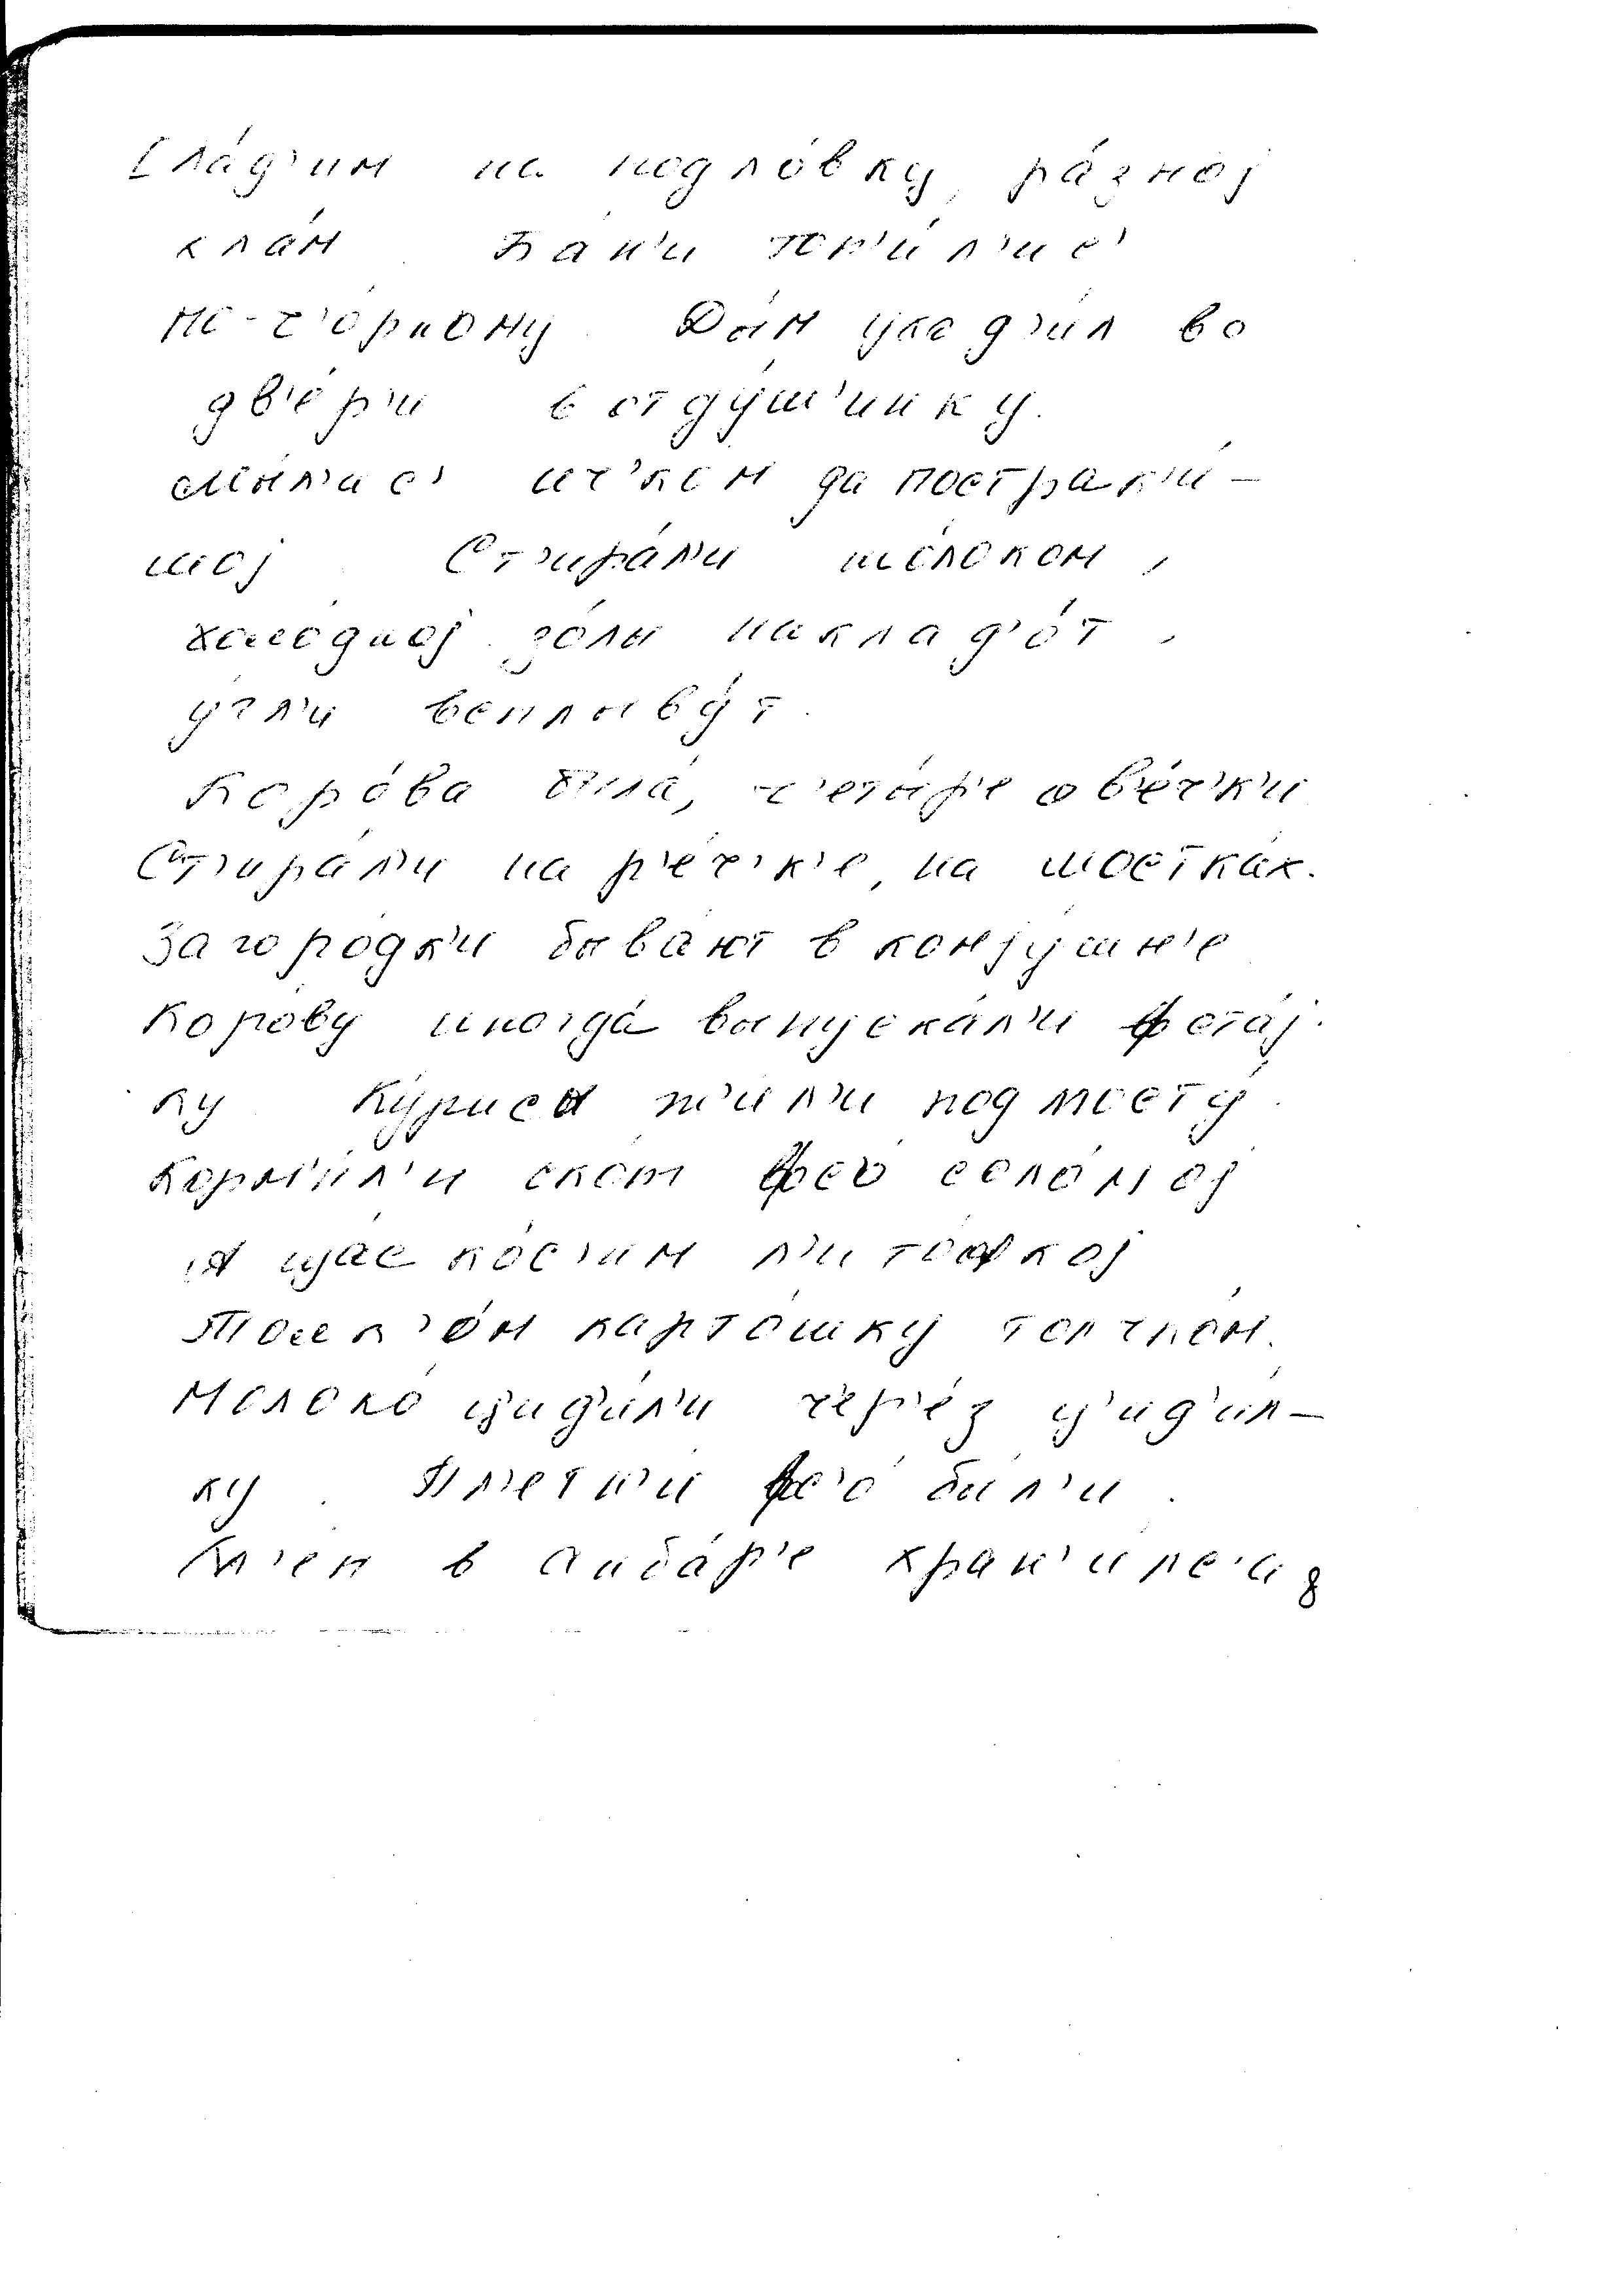 Сла́д'им на подло́вку, ра́зној
хлам Бан'и топ'и́л'ис'
по-ч'о́рному. Дым уход'и́л во
дв'е́р'и в отду́ш'инку.
Мы́л'ис' ич'ком да постраки́-
шој Ст'ира́л'и що́локом,
холо́дној золы наклад'о́т,
у́гл'и всплыву́т.
Коро́ва была́, ч'еты́р'е ов'е́ч'к'и
Ст'ира́л'и на р'е́ч'к'е, на мостка́х.
Загоро́дк'и быва́ют в конју́шн'е
Коро́ву иногда́ выпуска́л'и фста́ј-
ку Ку́рисы жы́л'и под мосту́.
Корм'и́л'и скот фс'о соло́мој
А щас ко́с'им л'ито́фкој
Толк'о́м карто́шку толчко́м.
Молоко́ цыд'и́л'и ч'ер'е́з ц'ид'и́л-
ку. Пл'етн'и́ фс'о бы́л'и.
Хл'еп в анба́р'е хран'и́лс'а
8